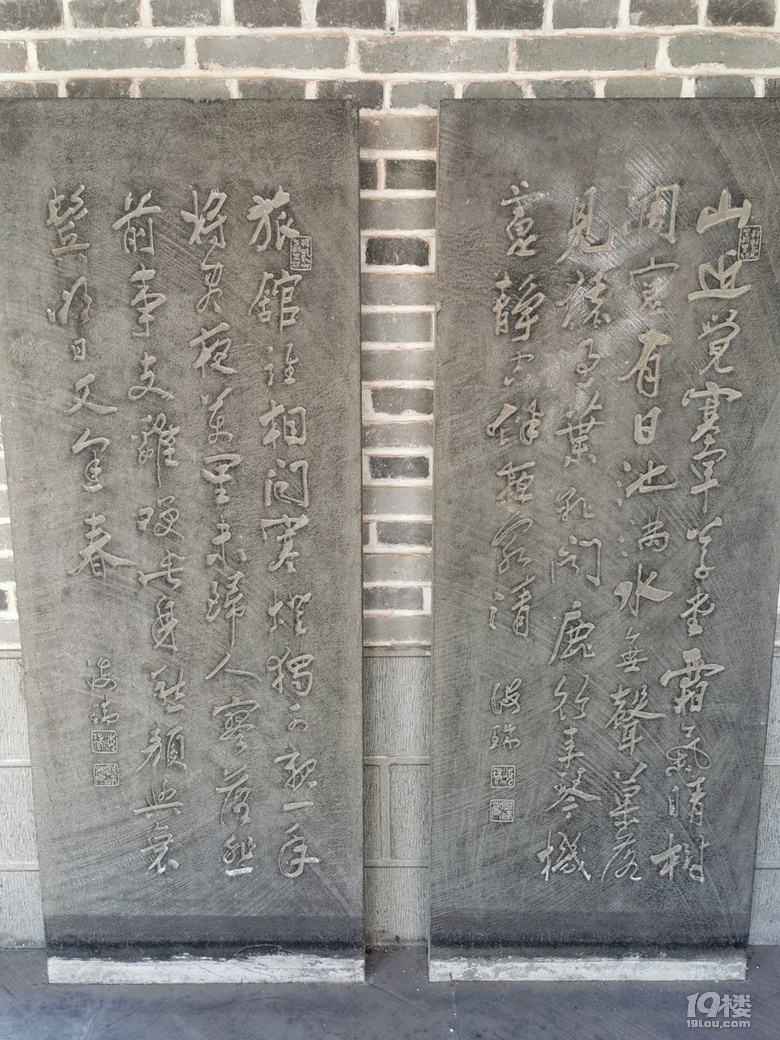 山近覺寒早草堂霜氣晴樹
凋窗有日池滿水無聲菓落
見猿過葉乾聞鹿行素琴機
慮靜空伴夜泉清
海瑞
旅館誰相問寒燈獨可親一年
將盡夜萬里未歸人寥落悲
前事支離咲此身愁顏與衰
鬢明日又逢春
海瑞
19楼
19lou.com